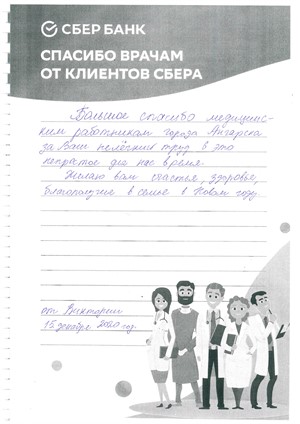 СБЕР БАНК
СПАСИБО ВРАЧАМ
ОТ КЛИЕНТОВ СБЕРА
Большое спасибо медицинс-
ким работникам города Ангарска
за Ваш нелёгкий труд в это
непростое для нас время.
Желаю вам счастья, здоровья,
благополучия в семье в Новом году.
от Виктории
15 декабря 2020 год.